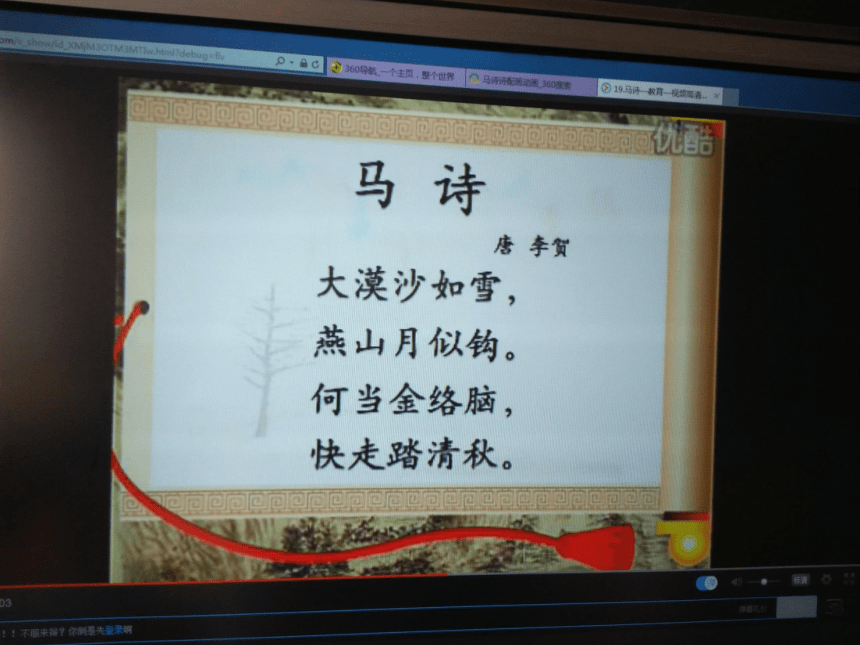 om/v_show/id_XMjM3OTM3MTIw.html?debug=flv
360导航_一个主页，整个世界
马诗诗配画动画_360搜索
19.马诗—教育—视频高清...
优酷
马 诗
唐 李贺
大漠沙如雪，
燕山月似钩。
何当金络脑，
快走踏清秋。
03
！！不服来辩？你倒是先登录啊